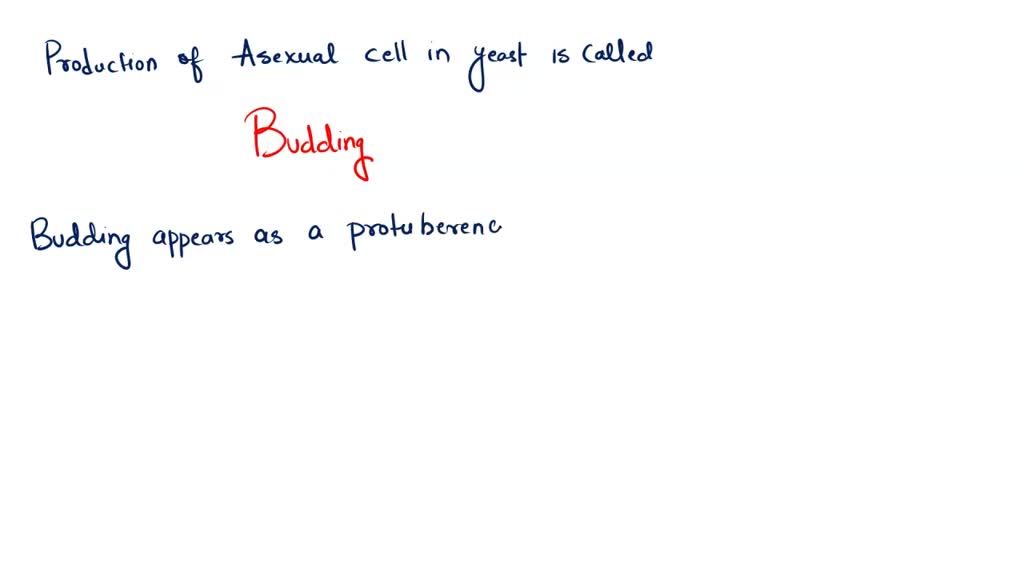 Production of Asexual cell in yeast is called
Budding
Budding appears as a protuberenc